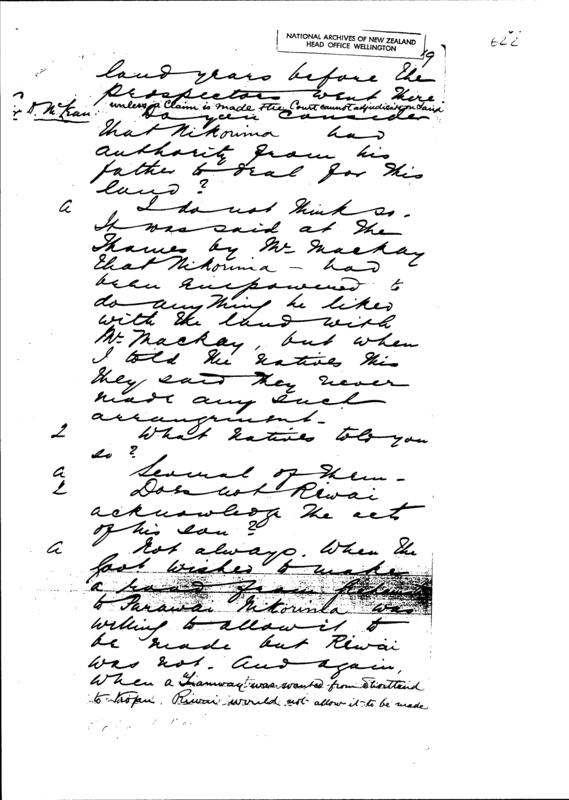 NATIONAL ARCHIVES OF NEW ZEALAND
HEAD OFFICE WELLINGTON
622
19
land years before the
prospectors went there
unless a claim is made the Court cannot adjudicate on land
Do you consider
that Nikorima had
authority from his
father to deal for this
land?
a I do not think so.
It was said at the
Thames by Mr Mackay
that Nikorima - had
been empowered to
do anything he liked
with the land with
Mr Mackay, but when
I told the natives this
they said they never
made any such
arrangement -
2 What natives told you
so?
a Several of them -
2 Does not Riwai
acknowledge the acts
of his son?
a Not always. When the
Govt wished to make
a road from
to Parawai Nikorima was
willing to allow it to
be made but Riwai
was not. And again,
when a Tramway was wanted from Shortland
to Riwai would not allow it to be made